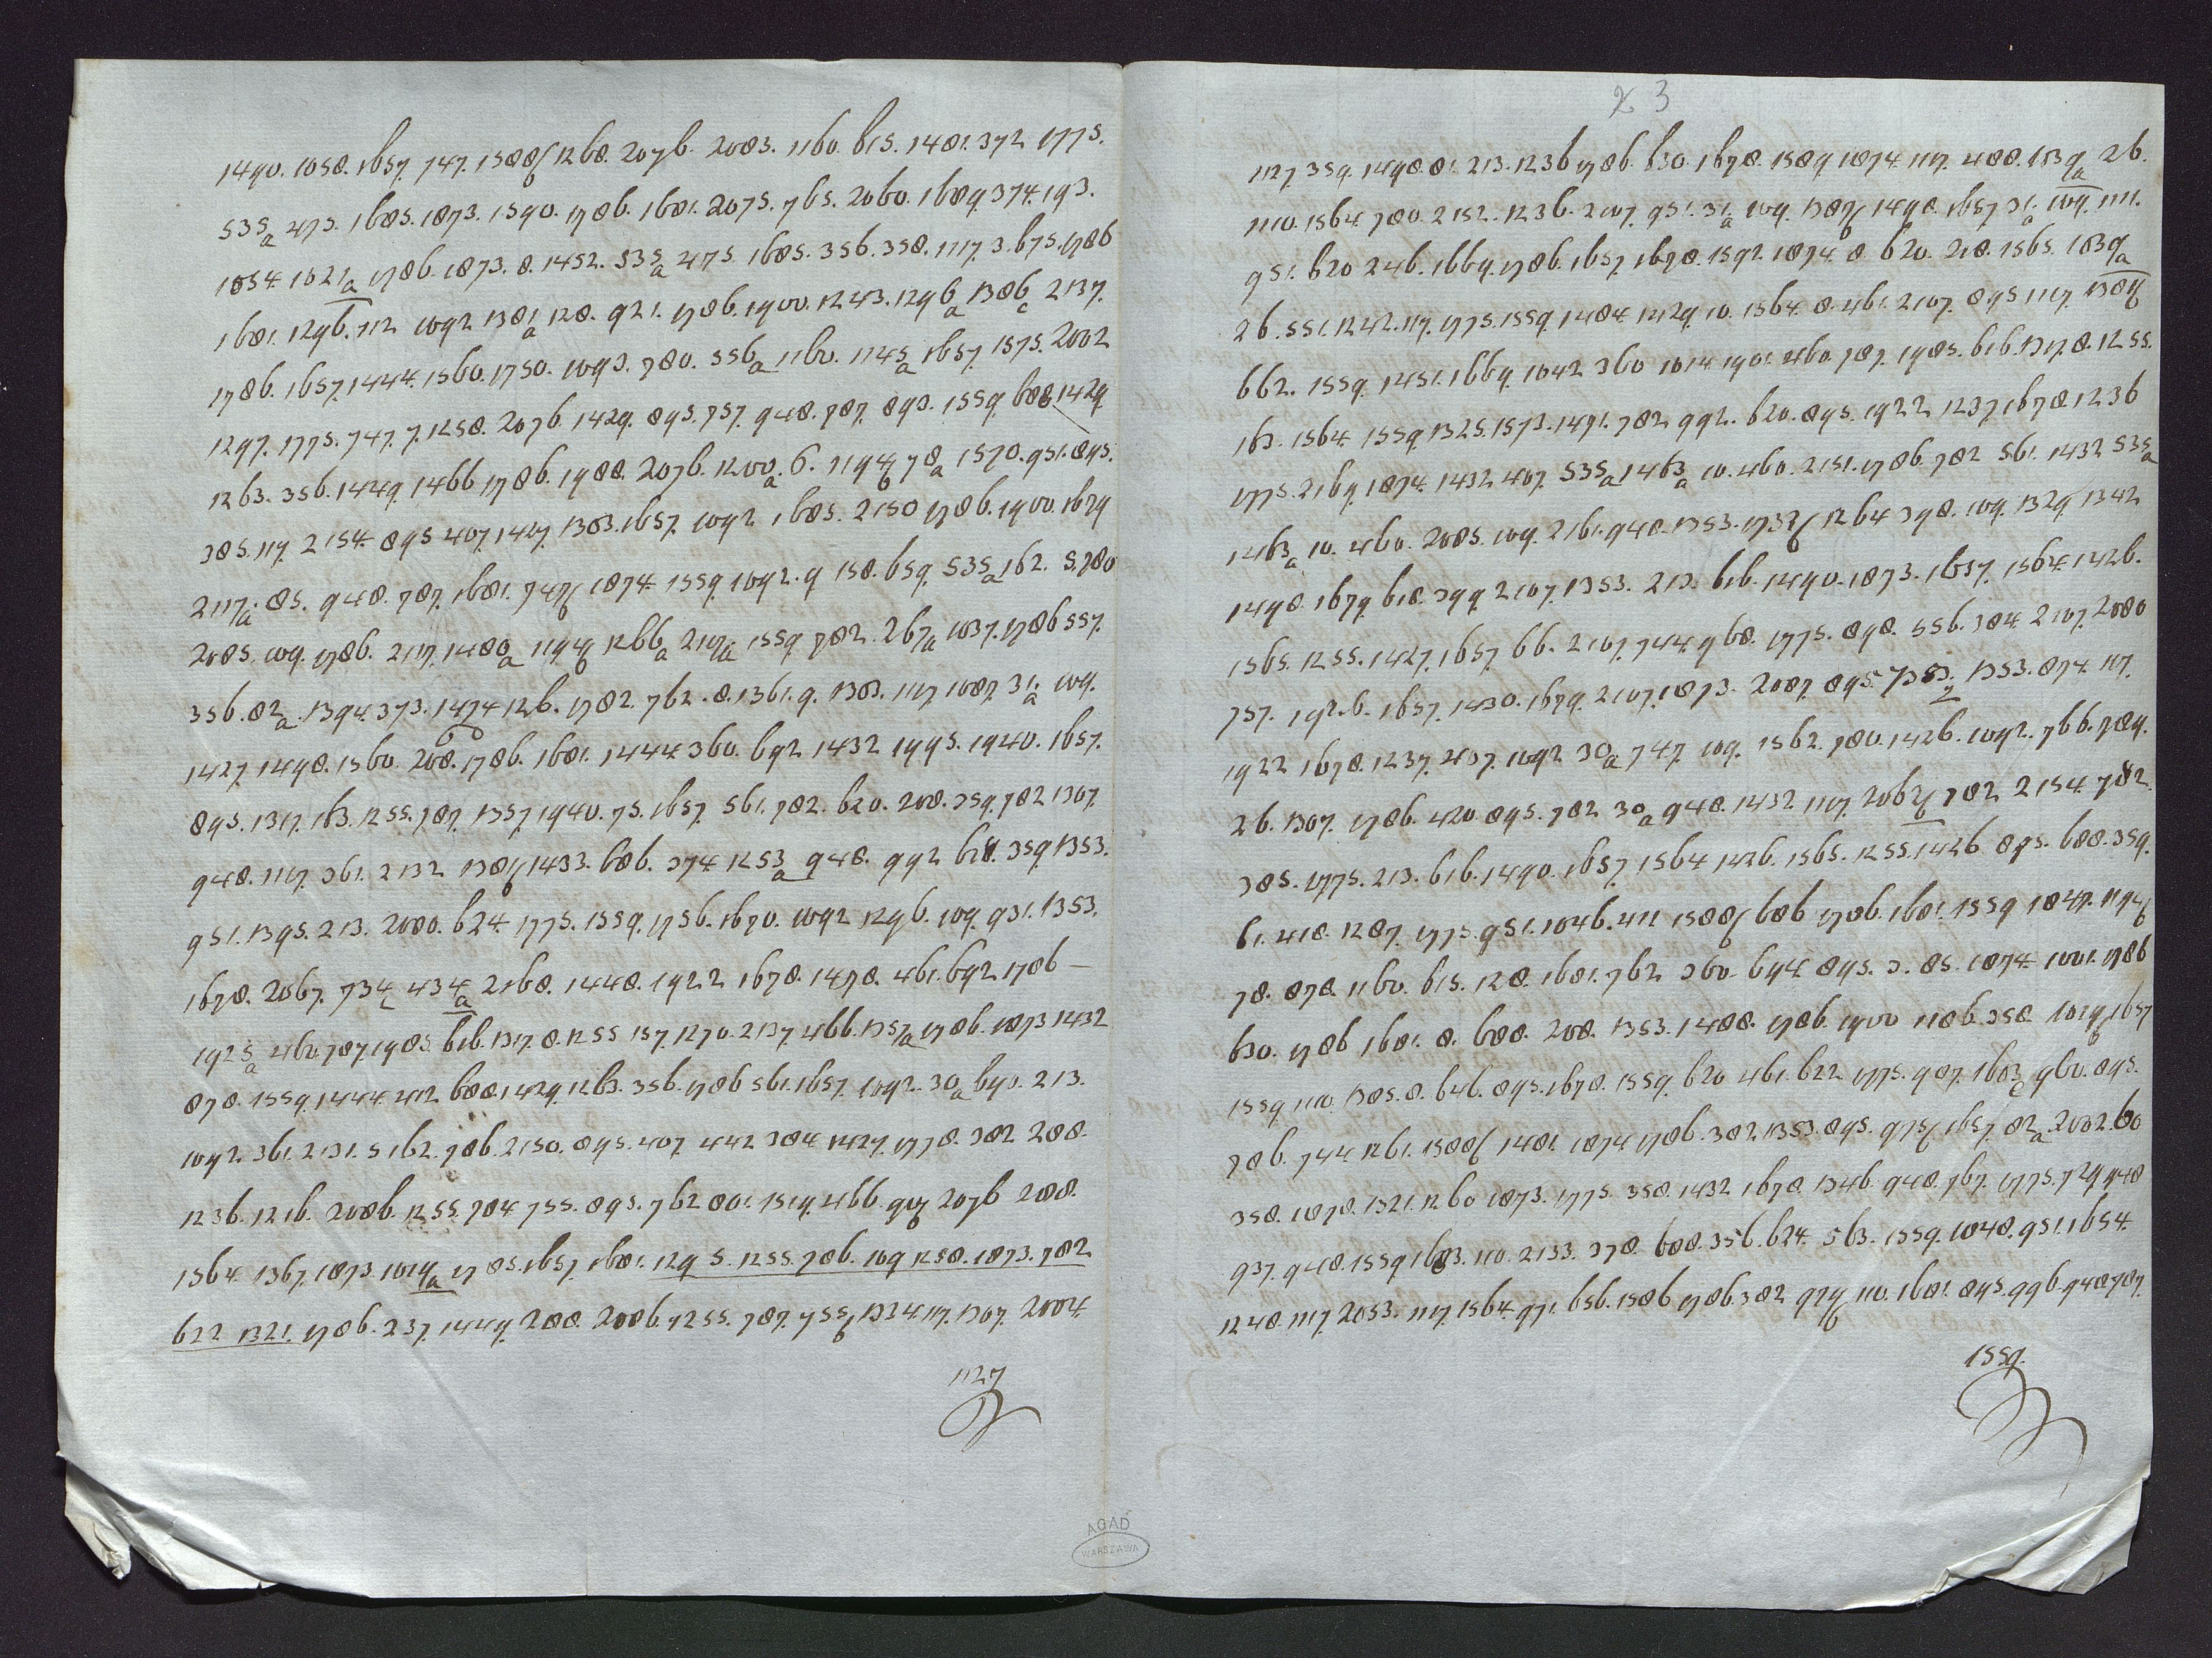 1490. 1058. 1657. 747. 1588 1268. 2076. 2083. 1160. 615. 1481. 372 1775.
535a 473. 1685. 1873. 1590. 1786. 1681. 2075. 765. 2060. 1689. 374. 193.
1854. 1621a 1786. 1873. 8. 1452. 535a 475. 1685. 356. 358. 1117 3. 675. 1786
1681. 1296. 112 1092 1381a 128. 921. 1786. 1900. 1243. 1296a 1386c 2137.
1786. 1657. 1444. 1560. 1750. 1093. 780. 556a 1160. 1145a 1657. 1575. 2002
1297. 1775. 747. 7. 1258. 2076. 1429. 895. 757. 948. 787. 893. 1559. 688 1429.
1263. 356. 1449 1466 1786. 1988. 2076. 1200a. 6. 1194b 78a 1570. 951. 895.
385. 117. 2154. 895 407. 1427. 1383. 1657. 1092 1685. 2150 1786. 1900. 1679
2117a. 85. 948. 787. 1681. 747 1874. 1559. 1092. 9 158. 659. 535a 162. 5. 780
2085. 109. 1786. 2117. 1480a 1194b 1266a 2117a 1559 782. 267a 1037. 1786 557.
356. 82a. 1394. 373. 1474 126. 1782. 762. 8. 1361. 9. 1383. 1117 1087. 31a 109.
1427. 1498. 1560. 208. 1786. 1681. 1444. 360. 692 1432 1995. 1940. 1657.
895. 1317. 163. 1255. 787. 1357. 1940. 75. 1657. 561. 782. 620. 208. 359. 782 1307.
948. 1117. 361. 2132 1387b 1433. 686. 374. 1253a 948. 992 628. 359 1353.
951. 1395. 213. 2080. 624. 1775. 1559. 1756. 1670. 1092 1296. 109. 931. 1353.
1678. 2067. 734c 434a 2168. 1448. 1922 1678. 1478. 461. 692 1786 —
1925a 460. 787 1985. 616. 1317. 8. 1255 157. 1270. 2137. 466. 1357a 1786. 1873 1432
878. 1559. 1444. 412 688. 1429. 1263. 356. 1786 561. 1657. 1092. 30a 690. 213.
1092. 361. 2131. 5 162. 786. 2150. 895. 407. 442 384. 1427. 1778. 382 288.
1236. 1216. 2086. 1255. 784 755. 893. 762 801. 1519. 466. 907b 2076 288.
1564. 1367. 1873. 1019a 1785. 1657. 1681. 129 5. 1255. 786. 109 1258. 1873. 782
622 1321. 1786. 237. 1449. 288. 2086. 1255. 787. 755b 1324. 117. 1307. 2004.
1127
3
1127. 359. 1498. 81. 213. 1236 1786. 630. 1678. 1589 1874. 1117. 488. 1839a 26.
1110. 1564. 780. 2152. 1236. 2107. 951. 31a 109. 1387b 1498. 1657 31a. 109. 1111.
951. 620 246. 1669. 1786. 1657. 1678. 1592. 1874. 8. 620. 218. 1565. 1839a
26. 551. 1242. 117. 1775. 1559. 1484. 1429. 10. 1564. 8. 461. 2107. 895 1117. 1387b
662. 1559. 1451. 1669. 1042 360 1014 1901. 460. 787. 1985. 616. 1317. 8. 1255.
163. 1564. 1559. 1325. 1573. 1491. 782 992. 620. 895. 1922 1237 1678 1236
1775. 2169. 1874. 1432 407. 535a 1463a 10. 460. 2151. 1786. 782 561. 1432 535a
1463a 10. 460. 2085. 109. 2161. 948. 1353. 1737 1264 398. 109. 1329 1342
1498. 1679. 618. 399 2107. 1353. 213. 616. 1490. 1873. 1657. 1564. 1426.
1565. 1255. 1427. 1657. 66. 2107. 744. 968. 1775. 898. 556. 384. 2107. 2080
757. 1926. 1657. 1430. 1679. 2107. 1873. 2087. 895. 7383 1353. 874. 117.
1922 1678. 1237. 407. 1092 30a 747. 109. 1562. 780. 1426. 1092. 766. 789.
26. 1307. 1786. 420. 895. 782 30a 948. 1432 1117. 2062 782 2154. 782.
385. 1775. 213. 616. 1490. 1657. 1564 1426. 1565. 1255. 1426 895. 688. 359.
61. 418. 1287. 1775. 951. 1046. 411 1588 686 1786. 1681. 1559 1847. 1194b
78. 878. 1160. 615. 128. 1681. 762 360. 694. 895. 3. 85. 1874. 1001. 1786
630. 1786 1681. 8. 688. 208. 1353. 1488. 1786. 1900 1186. 358. 1019b 1657
1559 1110. 1385. 8. 646. 895. 1678. 1559. 620 461. 622 1775. 987. 1683c 960. 895.
786. 744. 1261. 1588 1481. 1874 1786. 382 1353. 895. 975 1657. 82a 2002. 60
358. 1078. 1321. 1260 1873. 1775. 358. 1432 1678. 1346. 948. 767. 1775. 729 948
937. 948. 1559 1683. 110. 2133. 378. 688. 356. 624. 563. 1559. 1048. 951. 1654.
1248. 1117. 2053. 1117. 1564. 971. 656. 1586 1786. 382 979b 110. 1681. 895. 996. 948 787.
1559.
AGAD
WARSZAWA